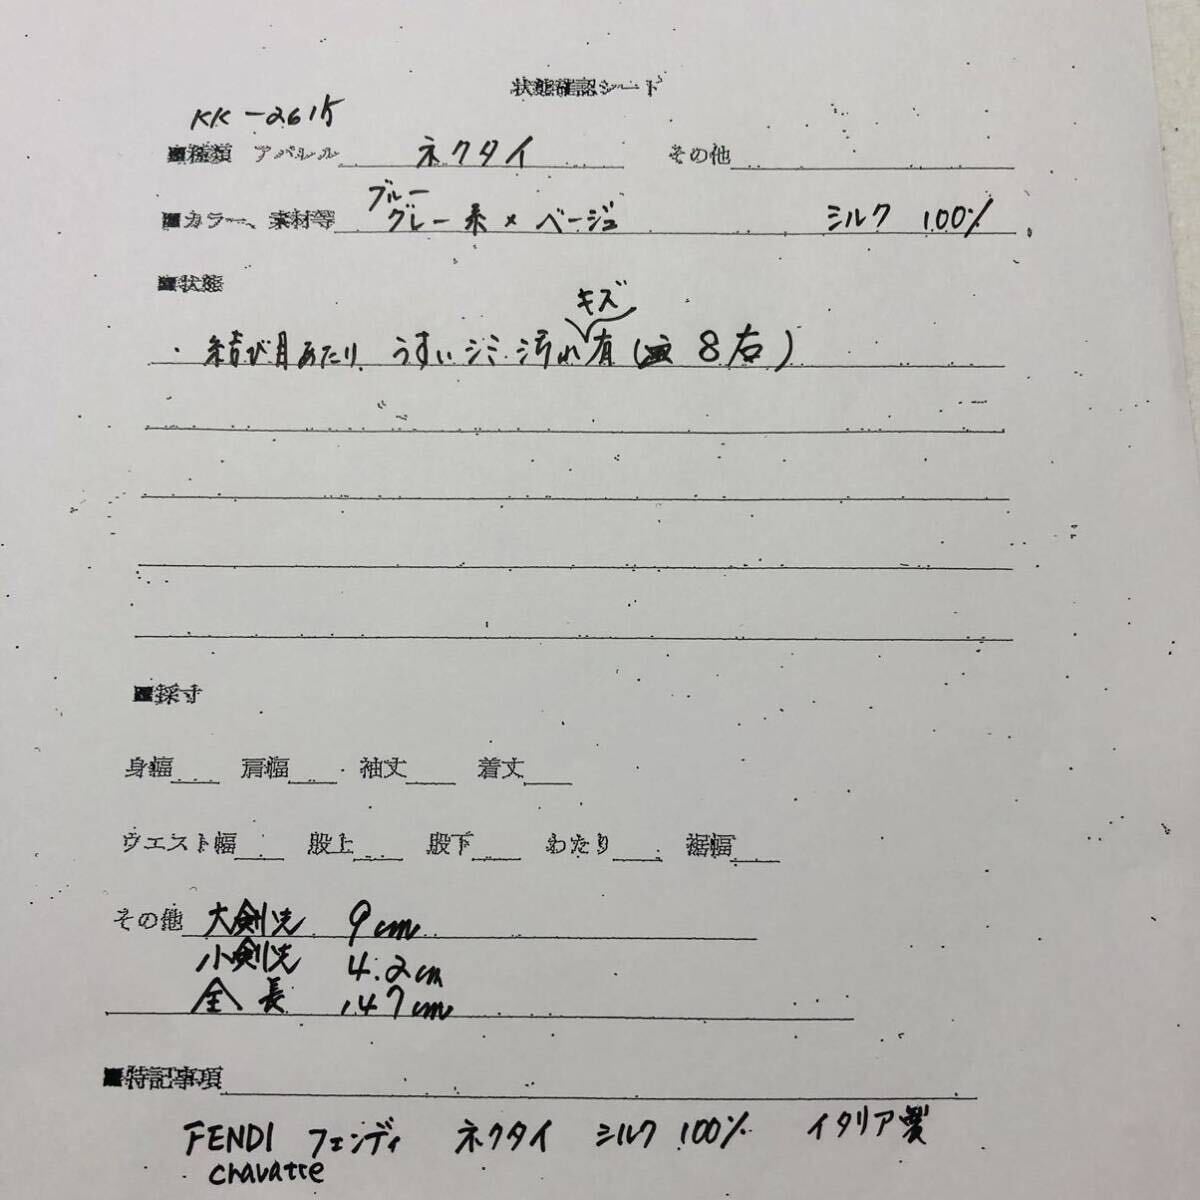 状態確認シート
KK-2615
■種類 アパレル ネクタイ その他
ブルー
■カラー、素材等 グレー系×ベージュ シルク 100%
■状態
キズ
・結び目あたり、うすいシミ、汚れ有( 8右)
■採寸
身幅 肩幅 袖丈 着丈
ウエスト幅 股上 股下 わたり 裾幅
その他 大剣先 9cm
小剣先 4.2cm
全長 147cm
■特記事項
FENDI フェンディ ネクタイ シルク 100% イタリア製
cravatte